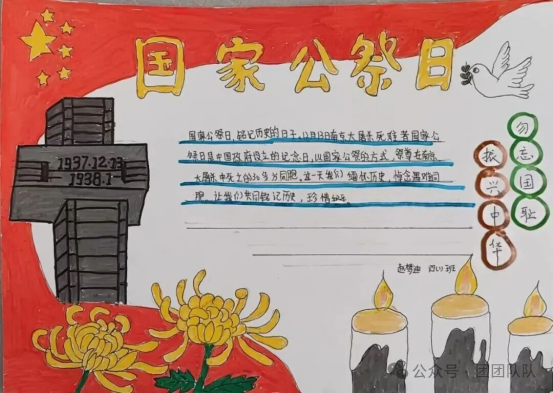 国家公祭日
1937.12.13
1938.1
国家公祭日,铭记历史的日子,12月13日南京大屠杀死难者国家公
祭日是中国政府设立的纪念日,以国家公祭的方式,祭奠在南京
大屠杀中死亡的30多万同胞,这一天我们缅怀历史,悼念遇难同
胞,让我们共同铭记历史,珍惜
勿忘国耻
振兴中华
班
公众号·团团队队